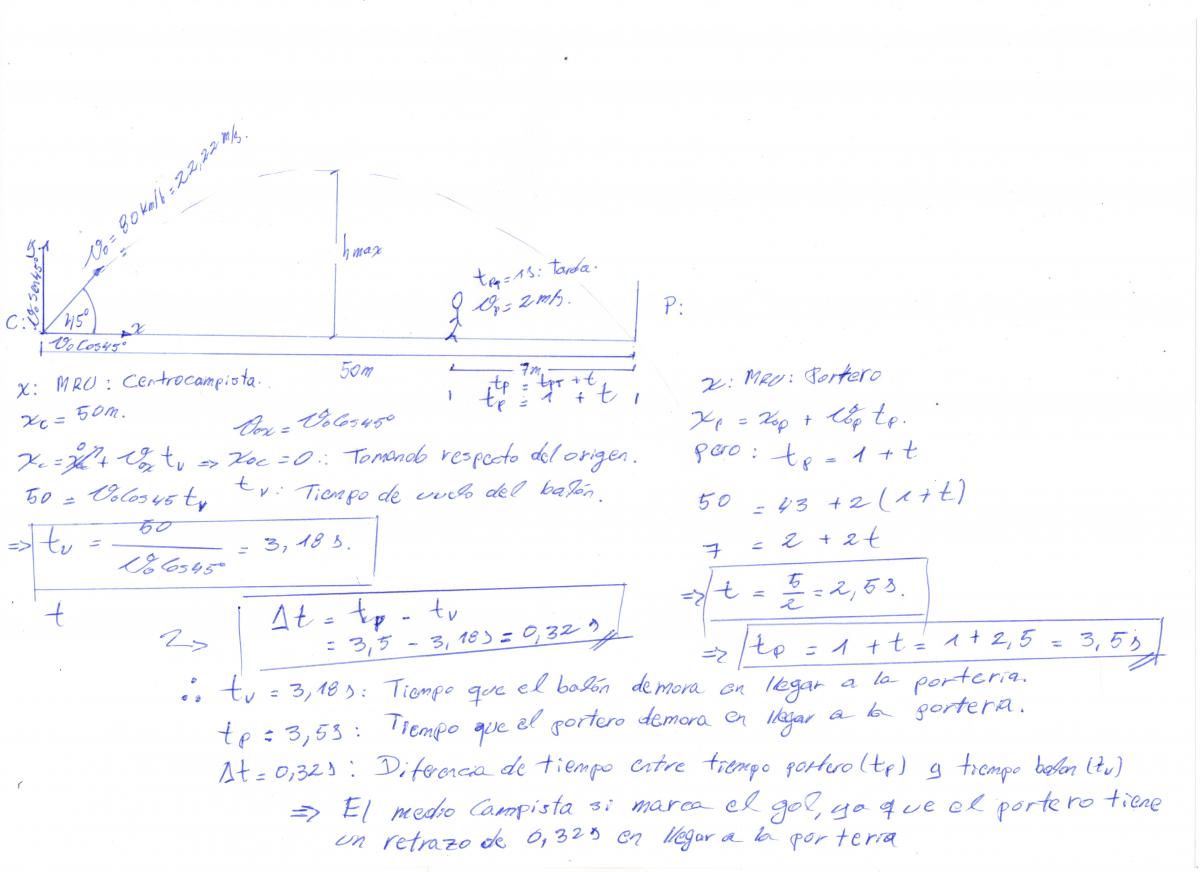 v₀ = 80 km/h = 22,22 m/s.
y
v₀ sen45°
hmax
tpq = 1s: tarda.
vp = 2 m/s.
C:
45°
x
P:
v₀Cos45°
50m
7m
tp = tpr + t
tp = 1 + t
x: MRU: Centrocampista.
xc = 50m.
vox = v₀Cos45°
xc = xoc + vox tv => xoc = 0 ∴ Tomando respecto del origen.
50 = v₀Cos45 tv
tv: Tiempo de vuelo del balón.
=> tv = 50 / v₀Cos45° = 3,18 s.
t
x: MRU: Portero
xp = xop + vop tp.
pero: tp = 1 + t
50 = 43 + 2(1+t)
7 = 2 + 2t
=> t = 5/2 = 2,5s.
=> tp = 1 + t = 1 + 2,5 = 3,5s
Δt = tp - tv
= 3,5 - 3,18s = 0,32s
∴ tv = 3,18s: Tiempo que el balón demora en llegar a la portería.
tp = 3,5s: Tiempo que el portero demora en llegar a la portería.
Δt = 0,32s: Diferencia de tiempo entre tiempo portero (tp) y tiempo balon (tv)
=> El medio Campista si marca el gol, ya que el portero tiene
un retrazo de 0,32s en llegar a la portería